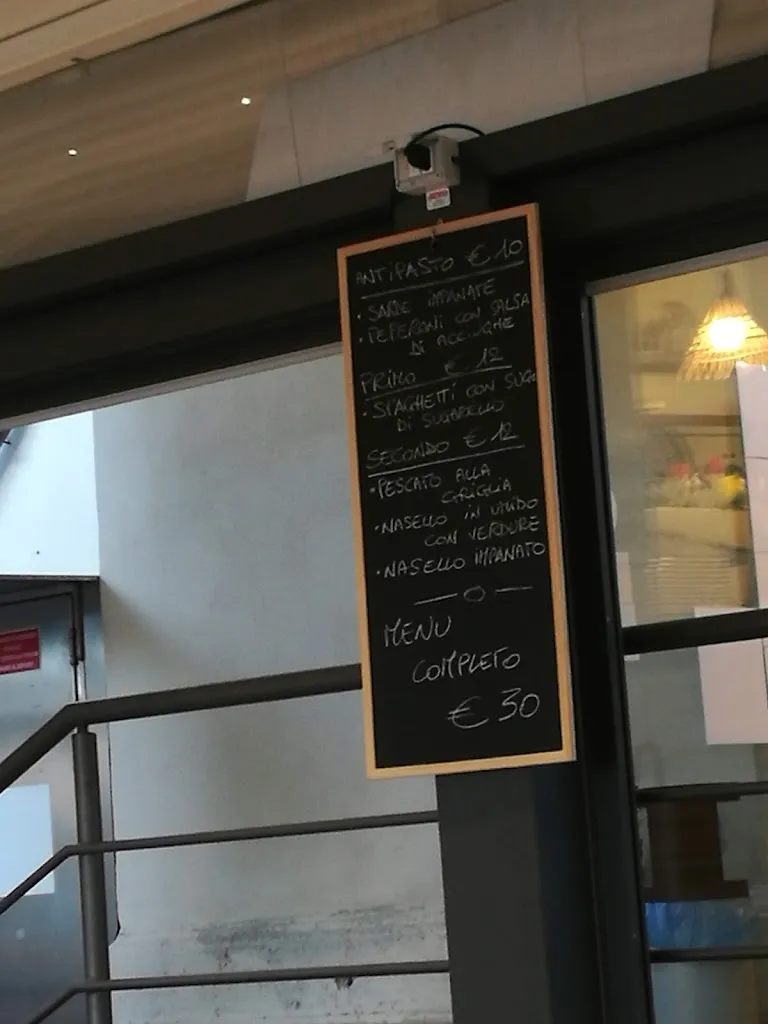 ANTIPASTO € 10
• SARDE IMPANATE
• PEPERONI CON SALSA
DI ACCIUGHE
PRIMO € 12
• SPAGHETTI CON SUGO
DI SUGARELLO
SECONDO € 12
• PESCATO ALLA
GRIGLIA
• NASELLO IN UMIDO
CON VERDURE
• NASELLO IMPANATO
MENU
COMPLETO
€ 30